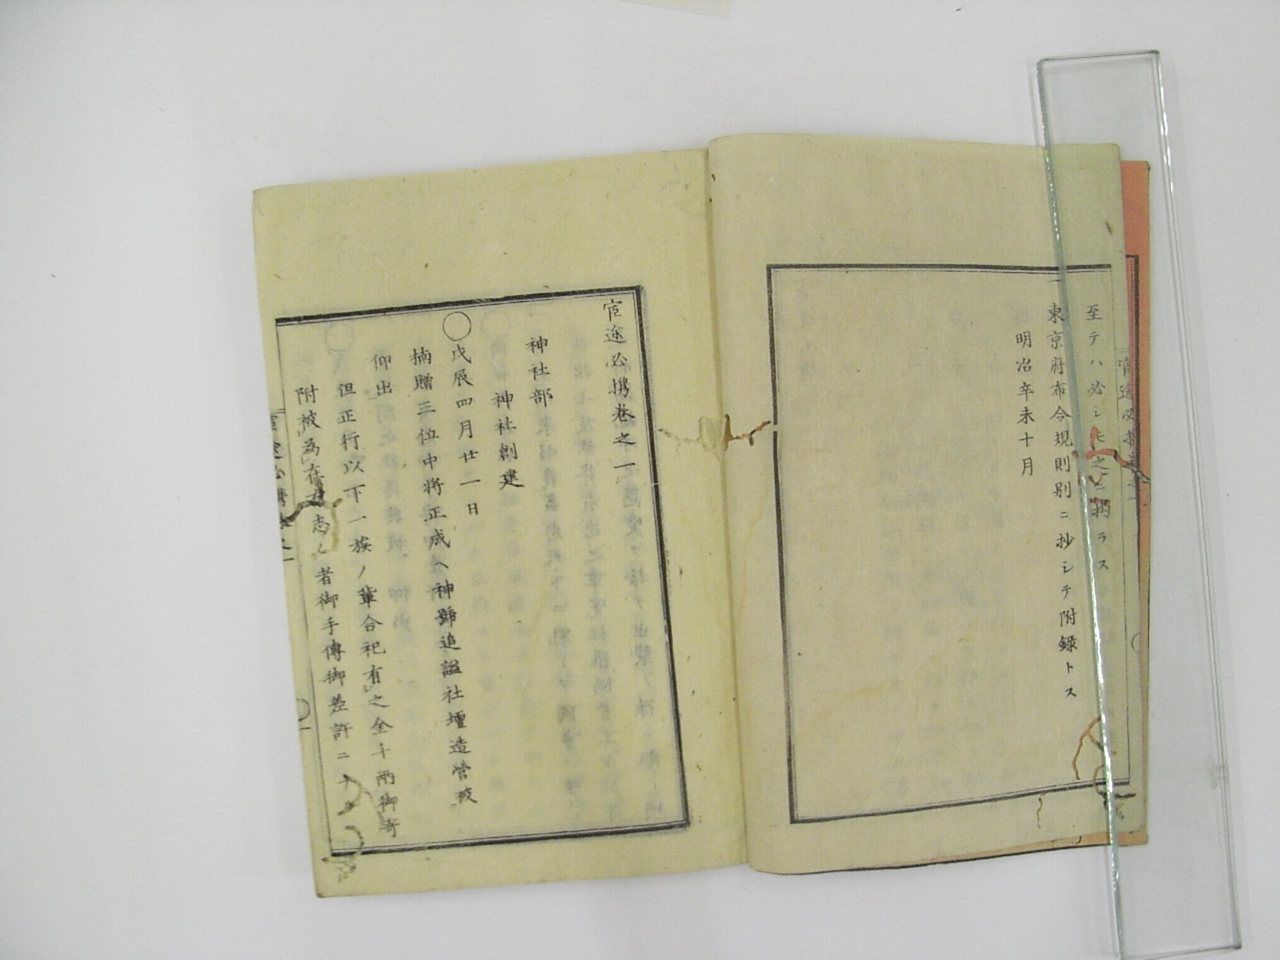 至テハ必シモ之ニ拘ラス
一東京府布令規則別ニ抄シテ附録トス
明治辛未十月
官途必携巻之一
神社部
神社創建
○戊辰四月廿一日
楠贈三位中将正成ヘ神號追謚社壇造営被
仰出
但正行以下一族ノ輩合祀有之金千両御寄
附被為在志ノ者御手傳御差許ニナル
官途必携巻之一